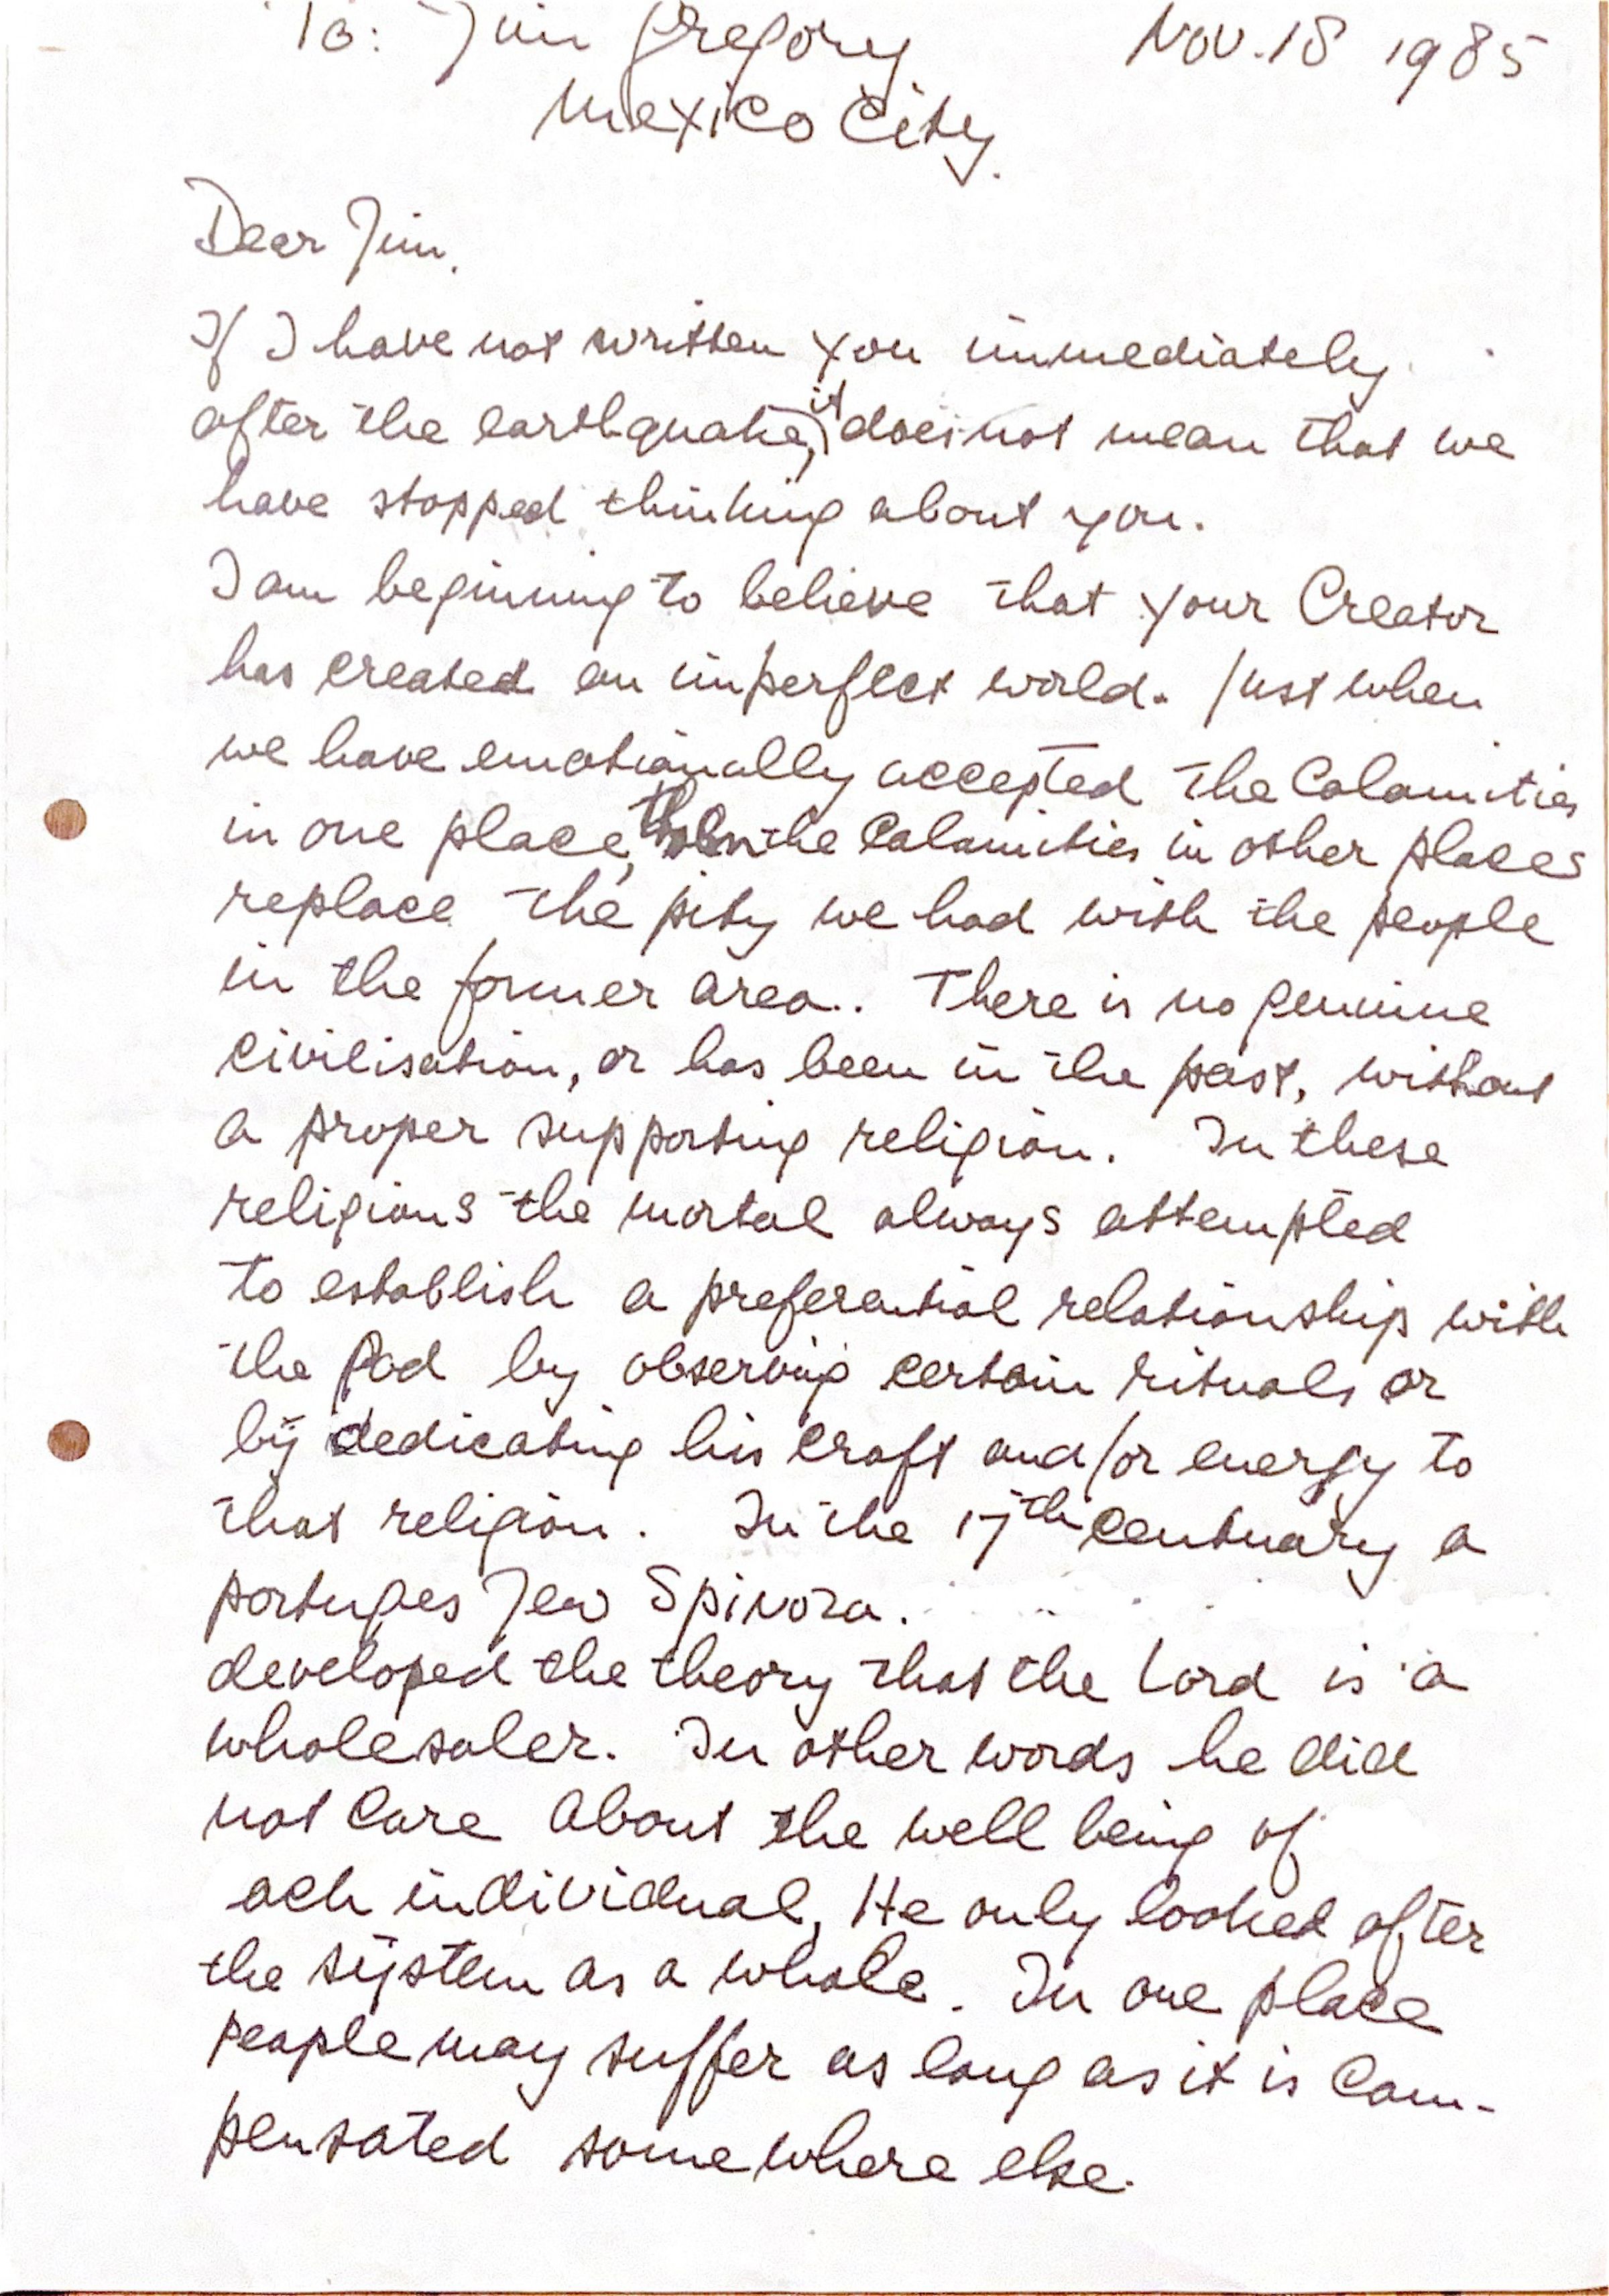 To: Jim Gregory Nov. 18 1985
Mexico City.
Dear Jim.
If I have not written you immediately
after the earthquake, it does not mean that we
have stopped thinking about you.
I am beginning to believe that your Creator
has created an imperfect world. Just when
we have emotionally accepted the Calamities
in one place, then the Calamities in other places
replace the pity we had with the people
in the former area.. There is no genuine
civilisation, or has been in the past, without
a proper supporting religion. In these
religions the mortal always attempted
to establish a preferential relationship with
the God by observing certain rituals or
by dedicating his craft and/or energy to
that religion. In the 17th centuary a
portuges Jew Spinoza.
developed the theory that the Lord is a
wholesaler. In other words he did
not care about the well being of
ach individual, He only looked after
the system as a whole. In one place
people may suffer as long as it is Com-
pensated somewhere else.